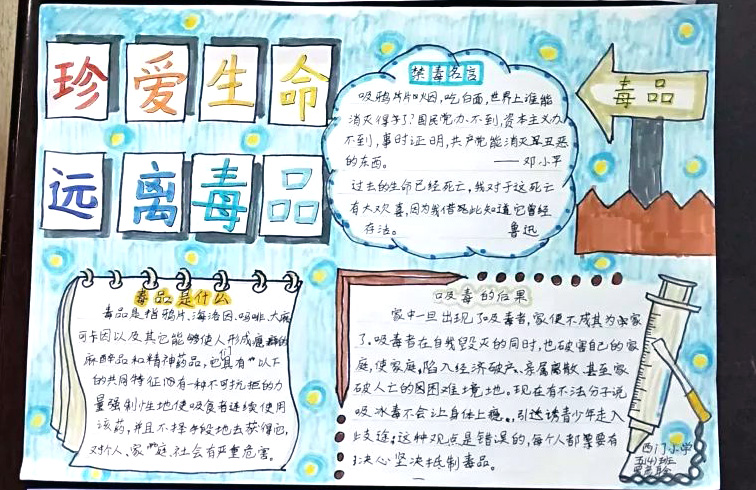 珍爱生命
远离毒品
禁毒名言
吸鸦片烟,吃白面,世界上谁能
消灭得了?国民党办不到,资本主义办
不到,事时证明,共产党能消灭丑恶
的东西。 ——邓小平
过去的生命已经死亡,我对于这死亡
有大欢喜,因为我借此知道它曾经
存法。 鲁迅
毒品
毒品是什么
毒品是指鸦片、海洛因、吗啡、大麻
可卡因以及其它能够使人形成瘾癖的
麻醉品和精神药品,它们具有"以下
的共同特征:有一种不可抗拒的力
量强制性地使吸食者连续使用
该药,并且不择手段地去获得它,
对个人、家庭、社会有严重危害。
吸毒的后果
家中一旦出现了吸毒者,家便不成其为家
了。吸毒者在自我毁灭的同时,也破害自己的家
庭,使家庭陷入经济破产、亲属离散、甚至家
破人亡的困难境地。现在有不法分子说
吸冰毒不会让身体上瘾,引诱诱青少年走入
歧途,这种观点是错误的,每个人都要有
决心坚决抵制毒品。
西门小学
五(4)班